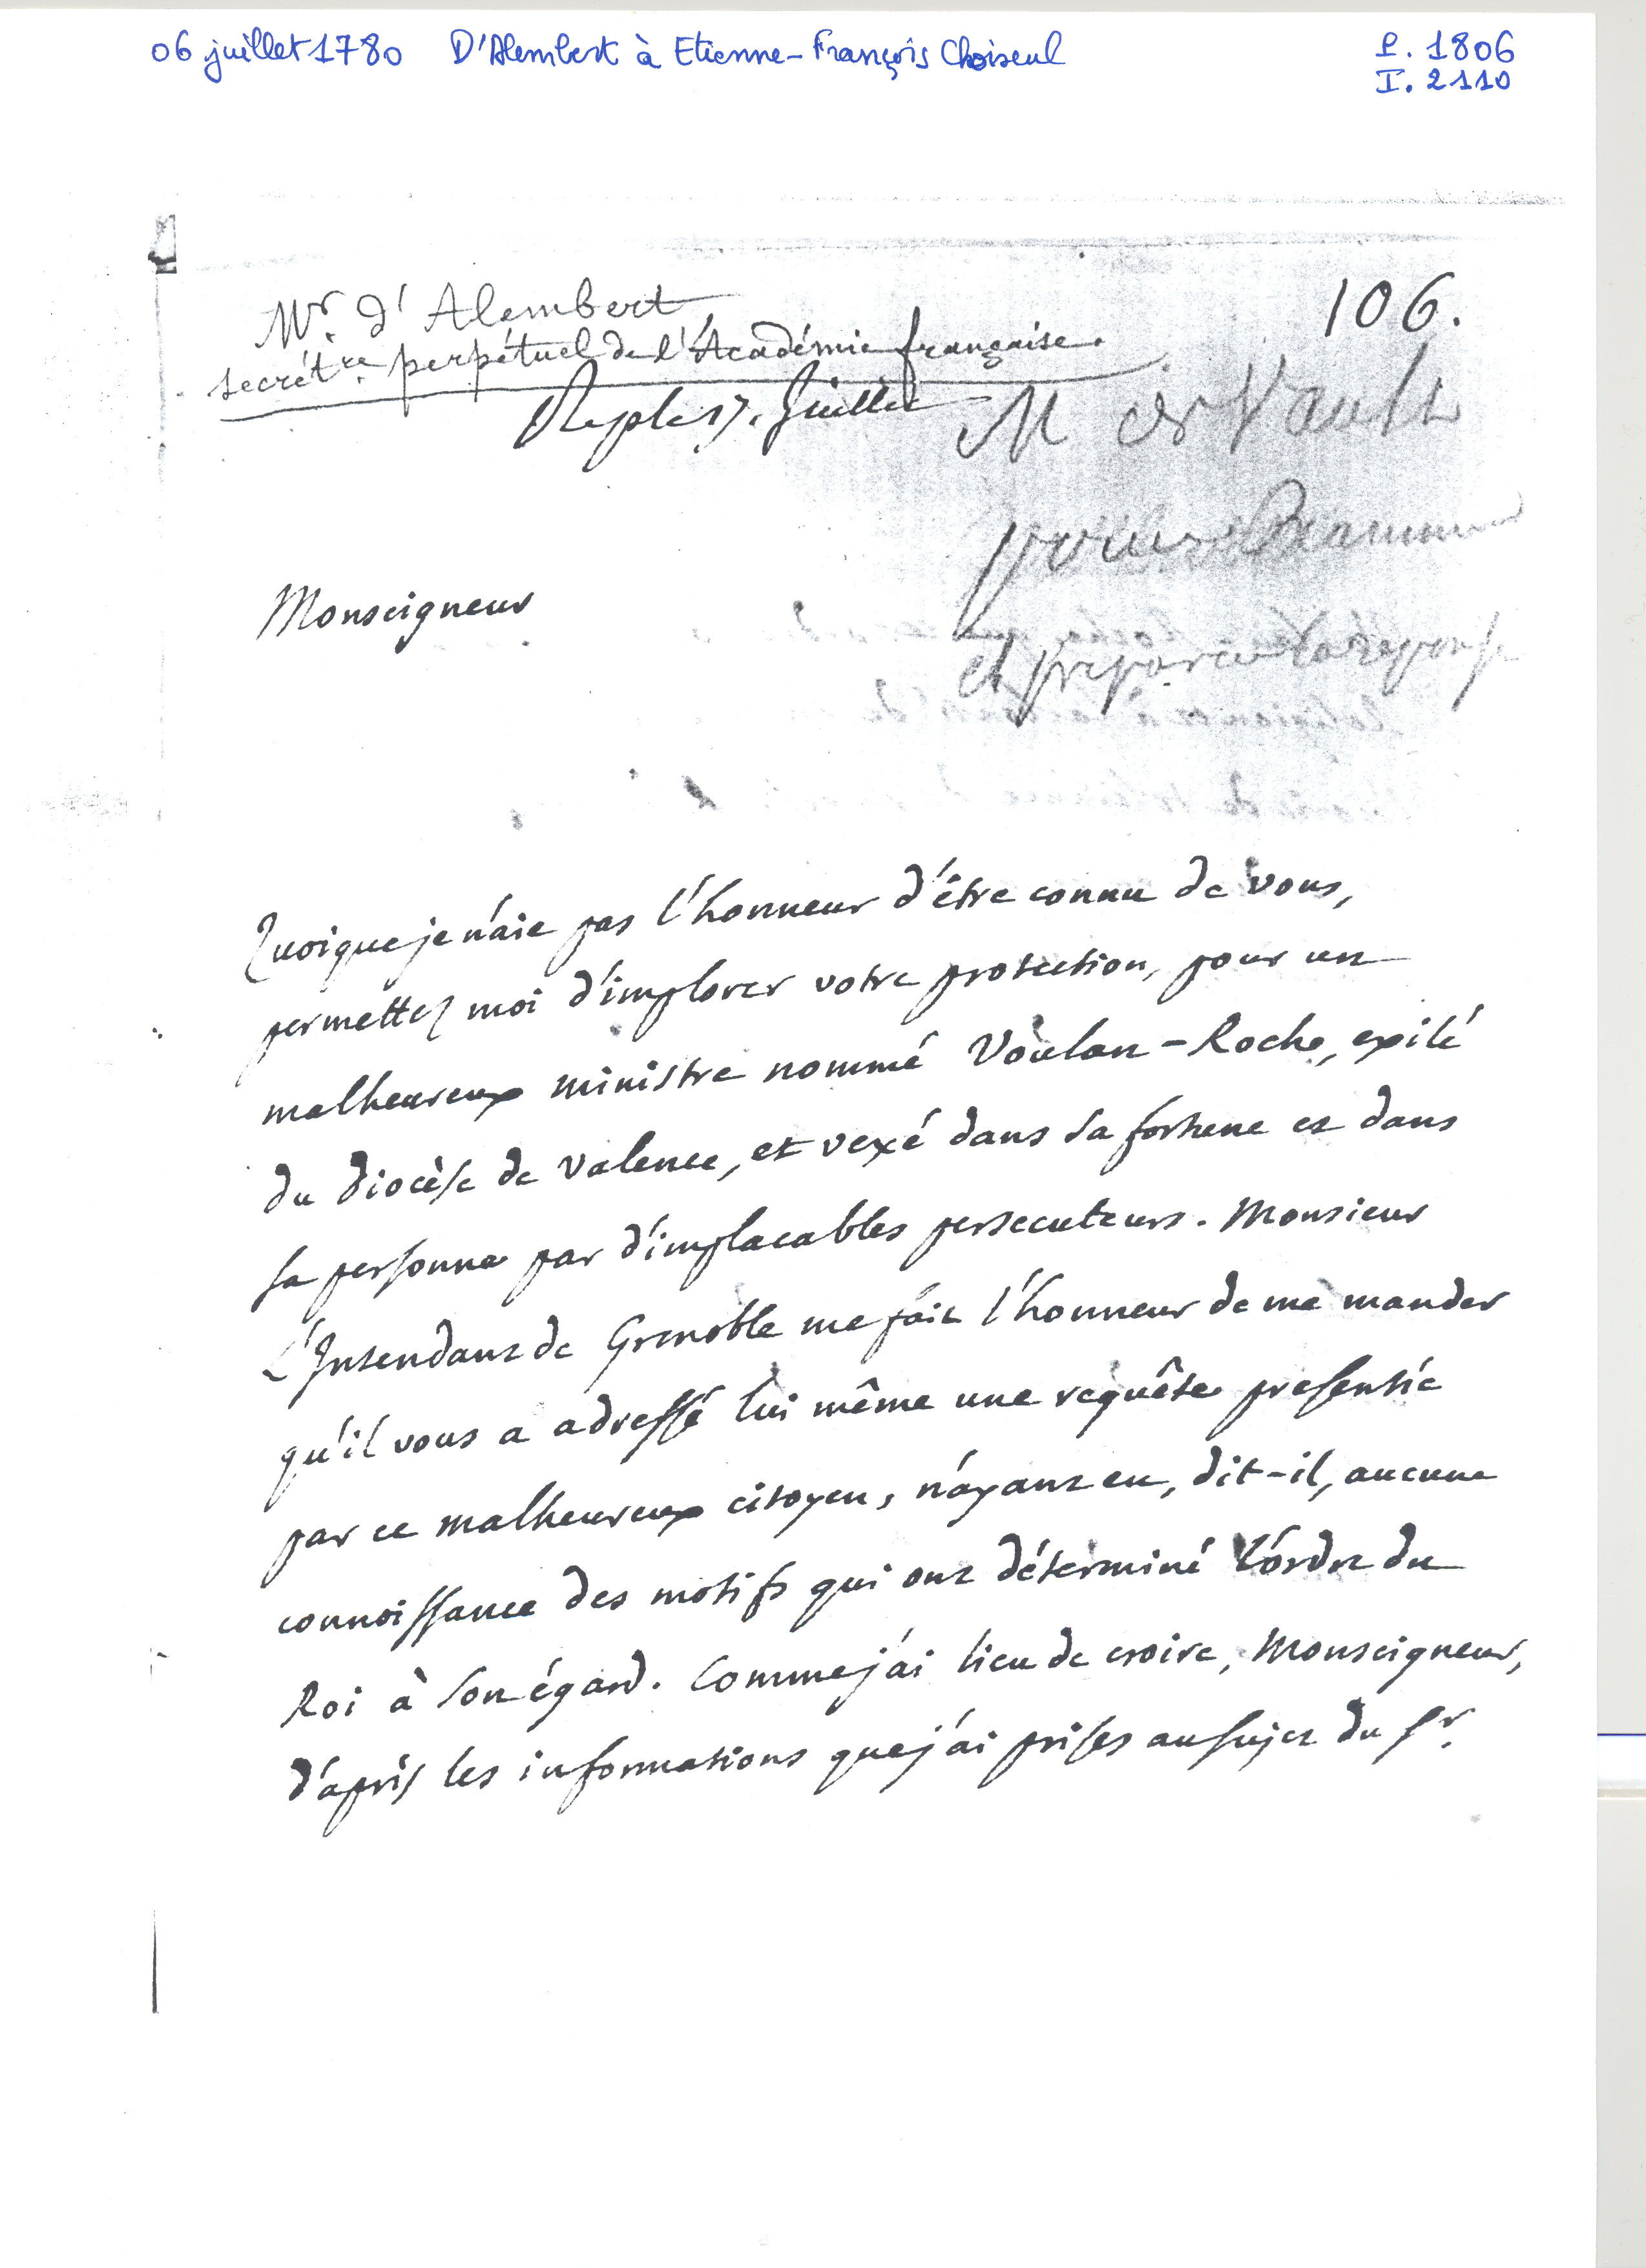 06 juillet 1780 D'Alembert à Etienne-François Choiseul
P. 1806
I. 2110
106.
Mr. d'Alembert
secrét.re perpétuel de l'Académie française.
Juillet
M de Vault
pour Examiner
et preparer la reponse
Monseigneur
Quoique je n'aie pas l'honneur d'être connu de vous,
permettez moi d'implorer votre protection, pour un
malheureux ministre nommé Voulan-Roche, exilé
du diocèse de Valence, et vexé dans sa fortune et dans
sa personne par d'implacables persecuteurs. Monsieur
L'Intendant de Grenoble me fait l'honneur de me mander
qu'il vous a adressé lui même une requête presentée
par ce malheureux citoyen, n'ayant eu, dit-il, aucune
connoissance des motifs qui ont déterminé l'ordre du
Roi à son égard. Comme j'ai lieu de croire, Monseigneur,
d'après les informations que j'ai prises au sujet du Sr.